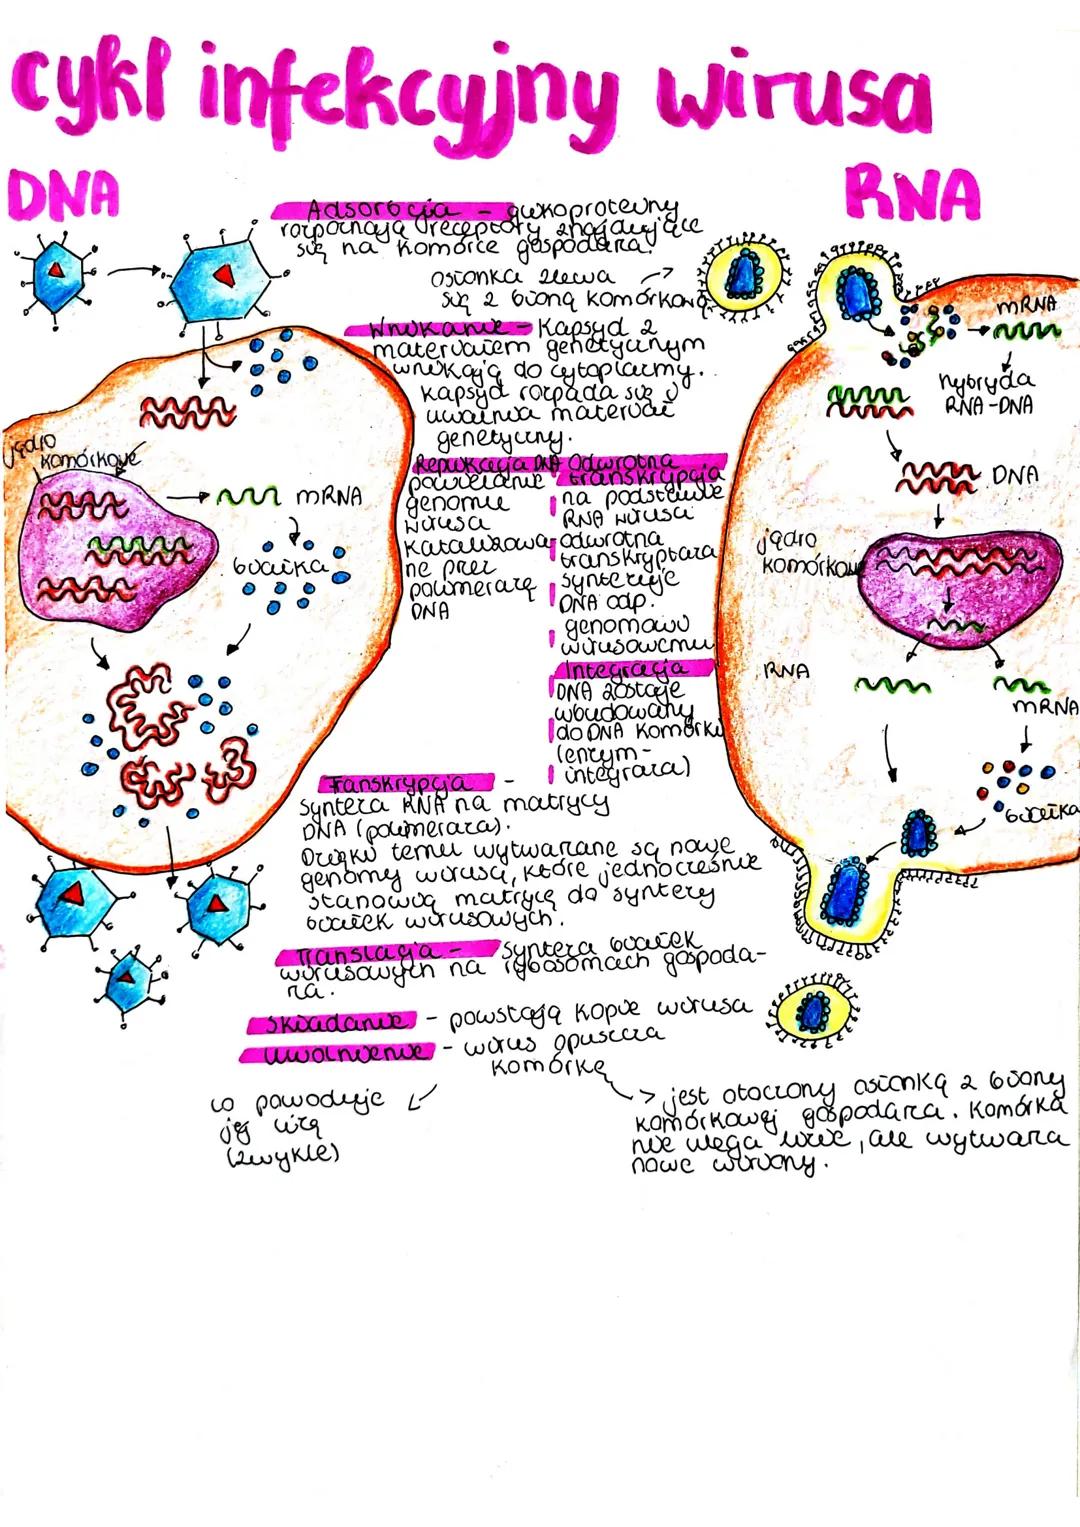 cykl infekcyjny wirusa
DNA
RNA
Adsorbcja - glikoproteiny
rozpoznają receptory znajdujące
się na komórce gospodarza.
osłonka zlewa
się z błoną komórkową
Wnikanie - Kapsyd z
materiałem genetycznym
wnikają do cytoplazmy.
kapsyd rozpada się i
uwalnia materiał
genetyczny.
Replikacja DNA
powielanie
genomu
wirusa
katalizowa-
ne przez
polimerazę
DNA
Odwrotna
transkrypcja
na podstawie
RNA wirusa
odwrotna
transkryptaza
syntezuje
DNA odp.
genomowi
wirusowemu
Integracja
DNA zostaje
wbudowany
do DNA komórki
(enzym-
integraza)
Transkrypcja -
synteza RNA na matrycy
DNA (polimeraza).
Dzięki temu wytwarzane są nowe
genomy wirusa, które jednocześnie
stanowią matrycę do syntezy
białek wirusowych.
Translacja - synteza białek
wirusowych na rybosomach gospoda-
rza.
Składanie - powstają kopie wirusa
Uwolnienie - wirus opuszcza
komórkę
co powoduje
jej lizę
(zwykle)
jest otoczony osłonką z błony
komórkowej gospodarza. Komórka
nie ulega lizie, ale wytwarza
nowe wiriony.
jądro
komórkowe
mRNA
białka
mRNA
hybryda
RNA-DNA
DNA
jądro
komórkowe
RNA
mRNA
białka